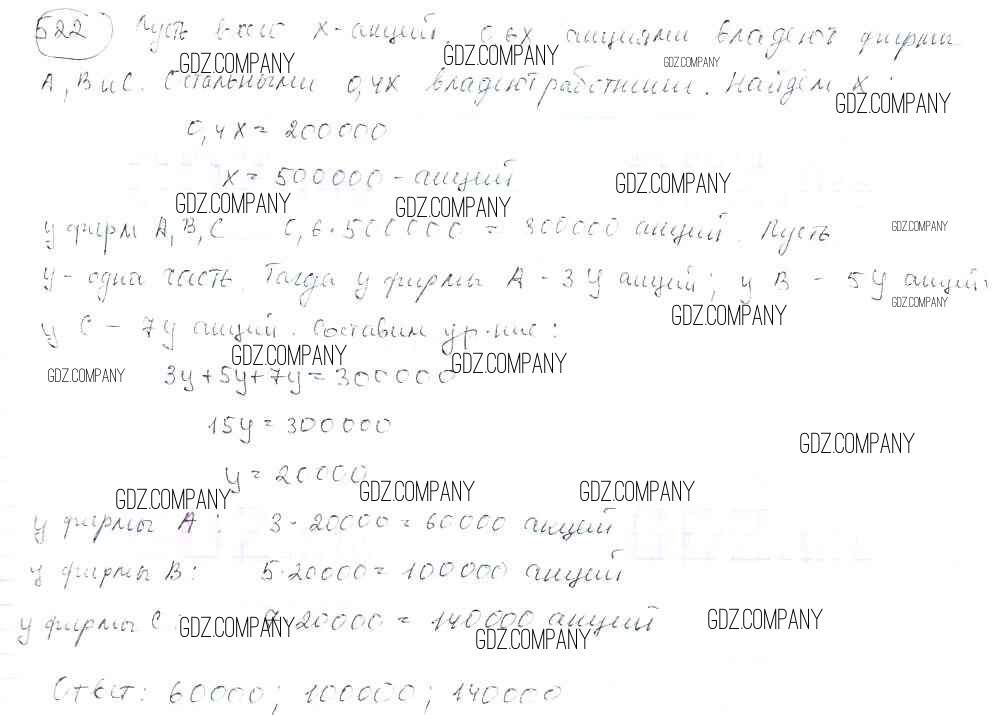 522 Пусть всего x-акций. 0,6x акциями владеют фирмы
GDZ.COMPANY GDZ.COMPANY GDZ.COMPANY
A, B и C. Остальными 0,4x владеют работники. Найдём x:
GDZ.COMPANY
0,4x = 200000
x = 500000 - акций
GDZ.COMPANY
GDZ.COMPANY GDZ.COMPANY
у фирм A, B, C 0,6·500000 = 300000 акций. Пусть
GDZ.COMPANY
y - одна часть. Тогда у фирмы A - 3y акций; у B - 5y акций;
GDZ.COMPANY GDZ.COMPANY
у C - 7y акций. Составим ур-ние:
GDZ.COMPANY GDZ.COMPANY
GDZ.COMPANY 3y + 5y + 7y = 300000
15y = 300000
GDZ.COMPANY
y = 20000
GDZ.COMPANY GDZ.COMPANY GDZ.COMPANY
у фирмы A: 3·20000 = 60000 акций
у фирмы B: 5·20000 = 100000 акций
у фирмы C: 7·20000 = 140000 акций
GDZ.COMPANY GDZ.COMPANY GDZ.COMPANY
Ответ: 60000; 100000; 140000